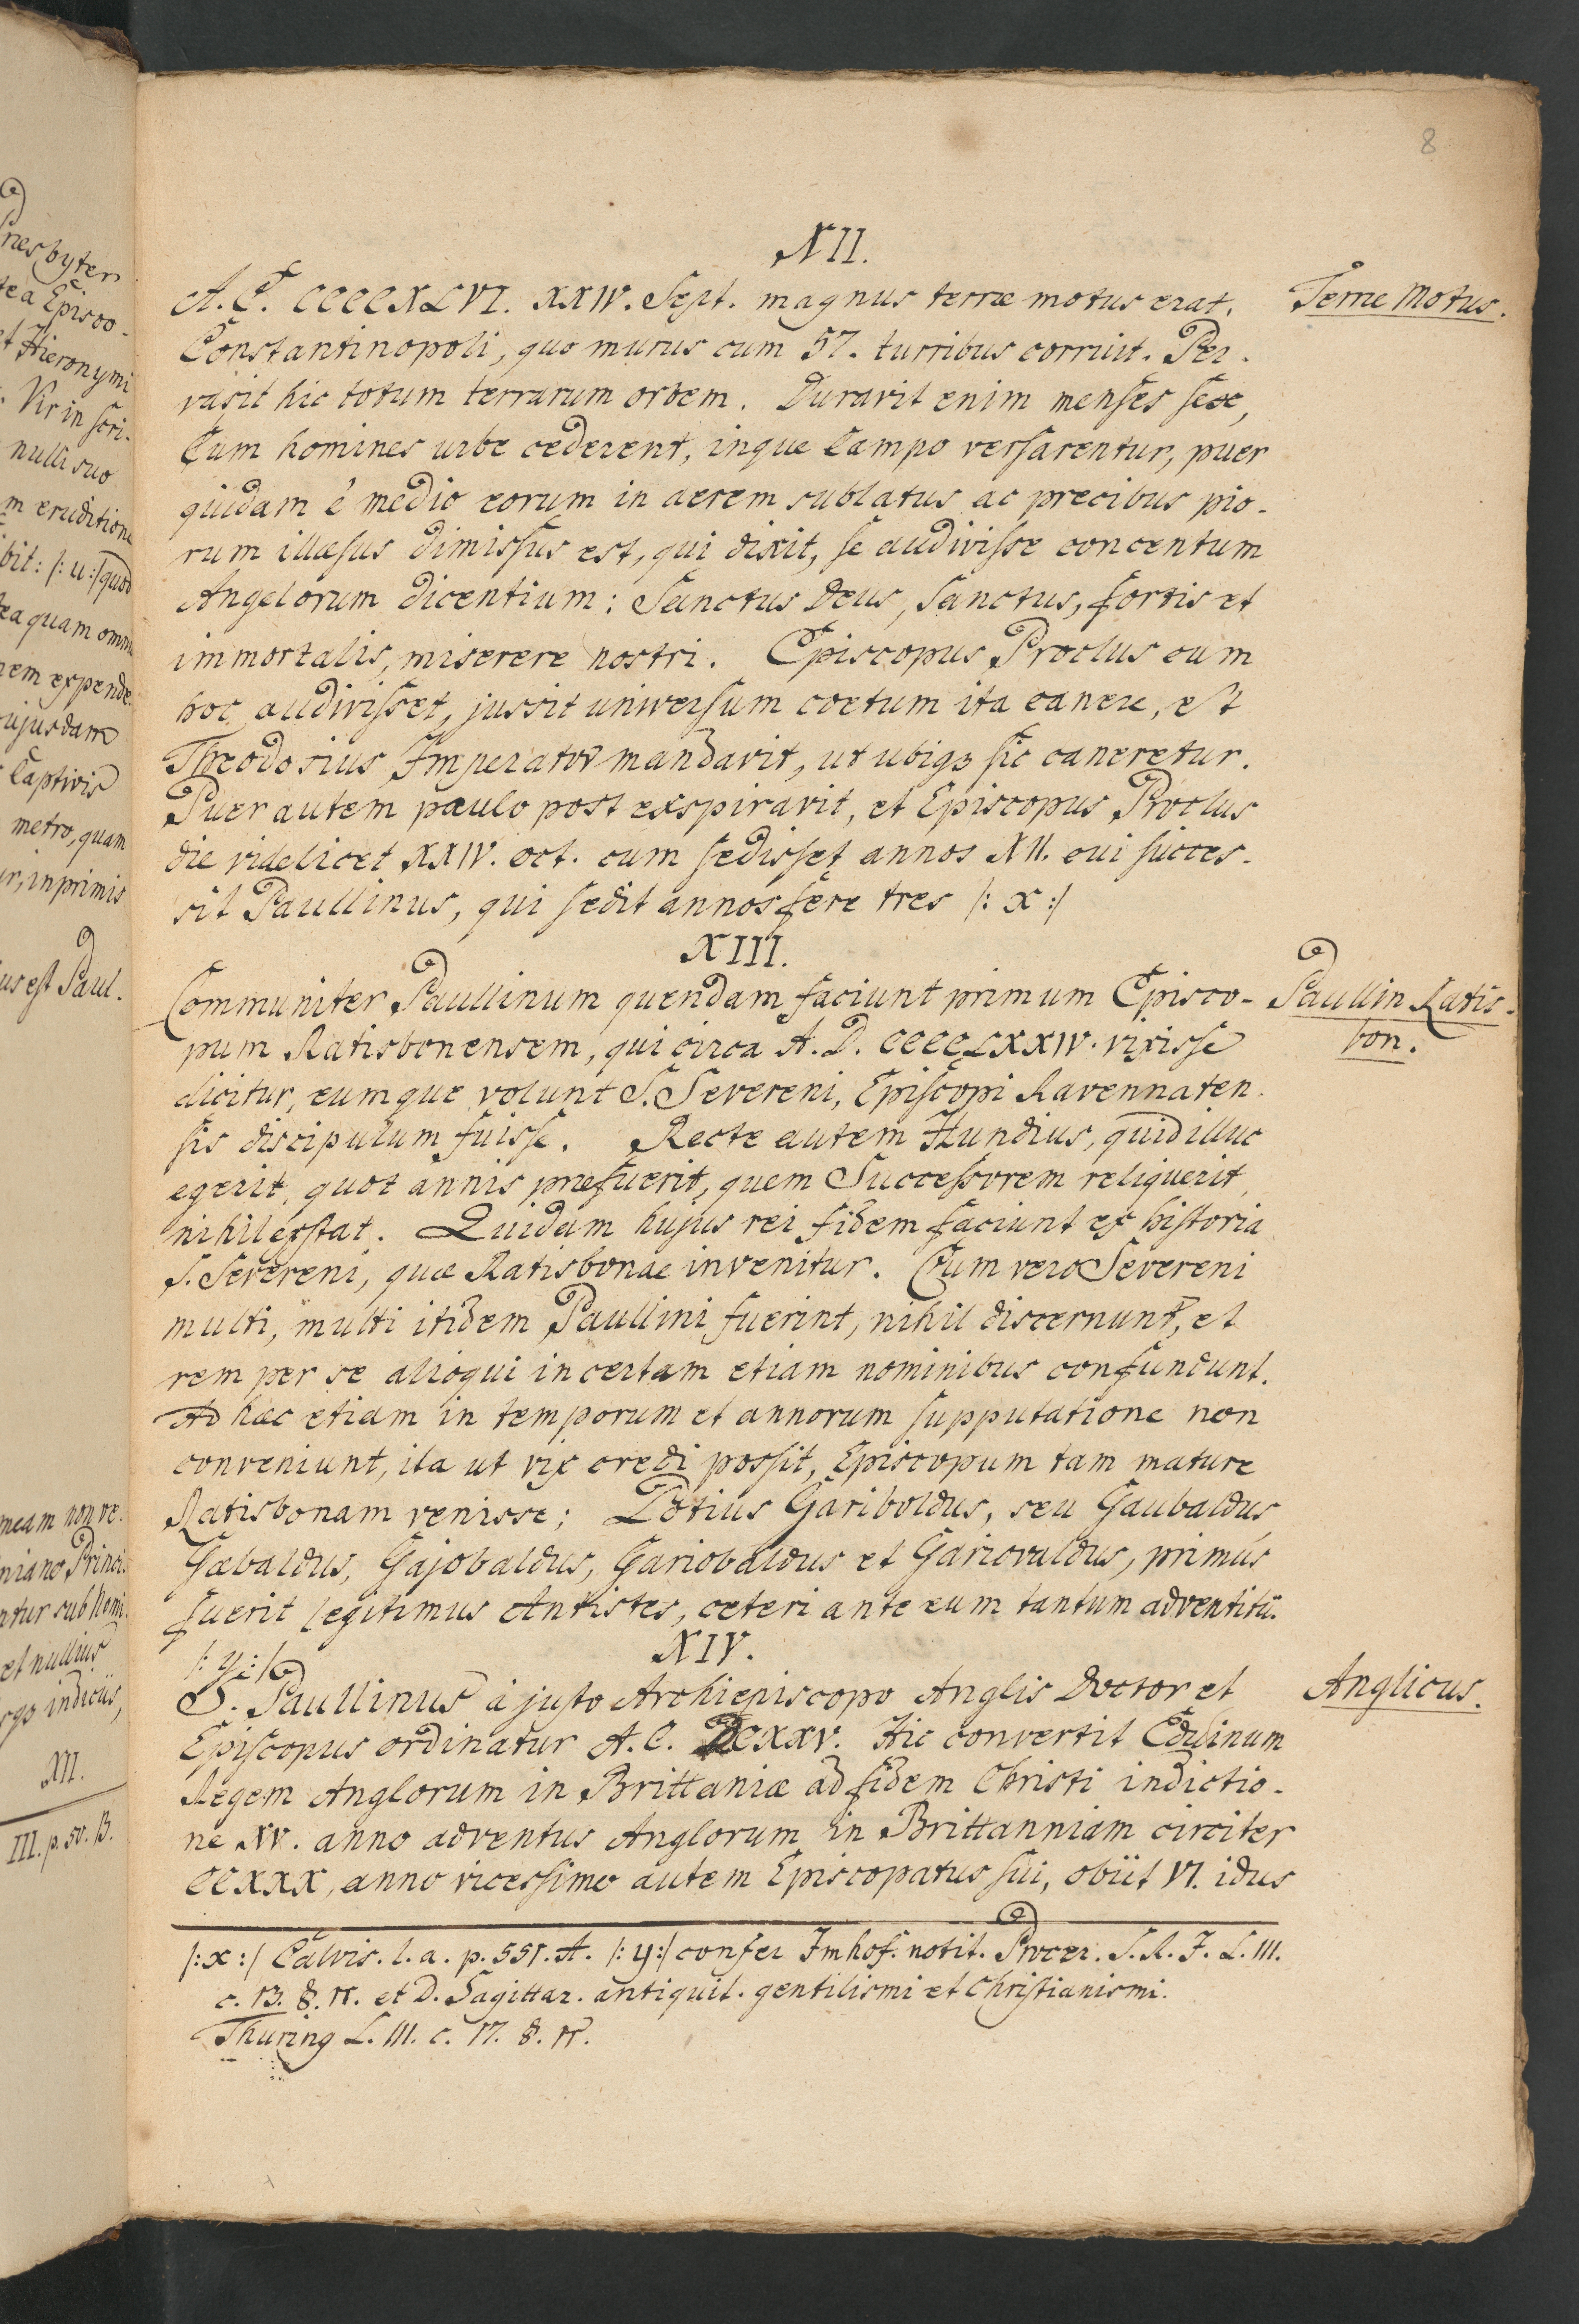 8
XII.
A. C. CCCCXLVI. XXIV. Sept. magnus terræ motus erat.
Terræ Motus.
Constantinopoli, quo murus cum 57. turribus corruit. Per-
vasit hic totum terrarum orbem. Duravit enim menses sex,
Cum homines urbe cederent, inque Campo versarentur, puer
quidam è medio eorum in aerem sublatus ac precibus pio-
rum illæsus dimissus est, qui dixit, se audivisse concentum
Angelorum dicentium: Sanctus Deus, Sanctus, fortis et
immortalis, miserere nostri. Episcopus Proclus cum
hoc audivisset, jussit universum coetum ita canere, et
Theodosius Imperator mandavit, ut ubiqz sic caneretur.
Puer autem paulo post exspiravit, et Episcopus Proclus
die videlicet XXIV. oct. cum sedisset annos XII. cui succes-
sit Paullinus, qui sedit annos fere tres /: x :/
XIII.
Communiter Paullinum quendam faciunt primum Episco-
Paullin. Ratis-
bon.
pum Ratisbonensem, qui circa A. D. CCCCLXXIV. vixisse
dicitur, eumque volunt S. Severeni, Episcopi Ravennaten-
sis discipulum fuisse. Recte autem Hundius, quid illuc
egerit, quot annis præfuerit, quem Successorem reliquerit,
nihil exstat. Quidam hujus rei fidem faciunt ex historia
S. Severeni, quæ Ratisbonae invenitur. Cum vero Severeni
multi, multi itidem Paullini fuerint, nihil discernunt, et
rem per se alioqui incertam etiam nominibus confundunt.
Ad hæc etiam in temporum et annorum supputatione non
conveniunt, ita ut vix credi possit, Episcopum tam mature
Ratisbonam venisse; Potius Gariboldus, seu Gaubaldus,
Gæbaldus, Gajobaldus, Gariobaldus et Gariovaldus, primus
fuerit legitimus Antistes, ceteri ante eum tantum adventitii.
/: y :/
XIV.
S. Paullinus à justo Archiepiscopo Anglis Doctor et
Anglicus.
Episcopus ordinatur A. C. DCXXV. Hic convertit Edwinum
Regem Anglorum in Brittania ad fidem Christi indictio-
ne XV. anno adventus Anglorum in Brittanniam circiter
CCXXX, anno vicessimo autem Episcopatus sui, obiit VI. idus
/: x :/ Calvis. l. a. p. 551. A. /: y :/ confer Imhof. notit. Procer. S. R. I. L. III.
c. 13. §. 11. et D. Sagittar. antiquit. gentilismi et Christianismi.
Thuring L. III. c. 17. §. 11.